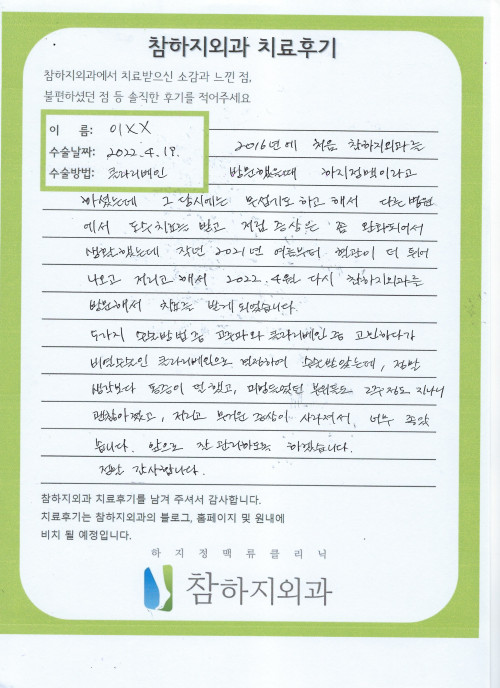 참하지외과 치료후기
참하지외과에서 치료받으신 소감과 느낀 점,
불편하셨던 점 등 솔직한 후기를 적어주세요
이 름: 이XX
수술날짜: 2022.4.19.
수술방법: 클라리베인
2016년에 처음 참하지외과를
방문했을때 하지정맥이라고
하셨는데 그 당시에는 무섭기도 하고 해서 다른 병원
에서 도수치료를 받고 저림 증상은 좀 완화되어서
생활했는데 작년 2021년 여름부터 혈관이 더 튀어
나오고 저리고 해서 2022.4월 다시 참하지외과를
방문해서 치료를 받게 되었습니다.
두가지 수술방법중 고주파와 클라리베인중 고민하다가
비열수술인 클라리베인으로 결정하여 수술받았는데, 정말
생각보다 통증이 덜했고, 미열들었던 부위들도 2주정도 지나니
괜찮아졌고, 저리고 무거운 증상이 사라져서, 너무 좋았
습니다. 앞으로 잘 관리하도록 하겠습니다.
정말 감사합니다.
참하지외과 치료후기를 남겨 주셔서 감사합니다.
치료후기는 참하지외과의 블로그, 홈페이지 및 원내에
비치 될 예정입니다.
하지정맥류클리닉
참하지외과